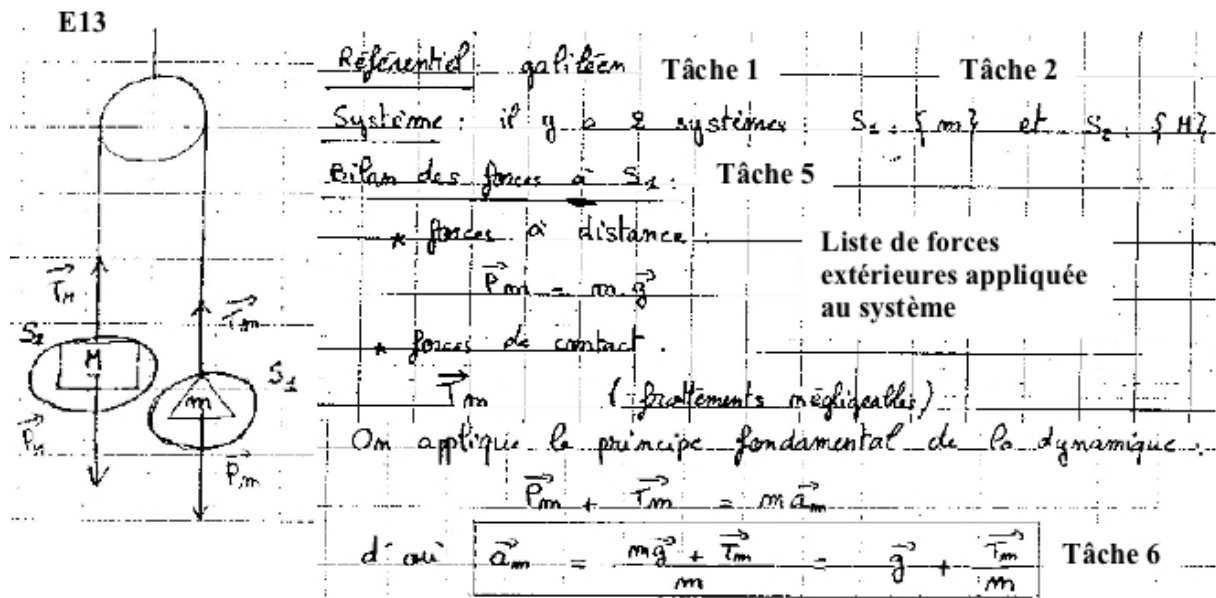 E13
Référentiel galiléen Tâche 1 Tâche 2
Système : il y a 2 systèmes : S₁ : {m} et S₂ : {M}
Bilan des forces à S₁ : Tâche 5
* forces à distance :
Liste de forces
extérieures appliquée
au système
P⃗m = m g⃗
* forces de contact .
T⃗m (frottements négligeables)
On applique le principe fondamental de la dynamique :
P⃗m + T⃗m = m a⃗m
d'où a⃗m = (m g⃗ + T⃗m) / m = g⃗ + T⃗m / m Tâche 6
T⃗M
T⃗m
S₂
M
S₁
m
P⃗M
P⃗m